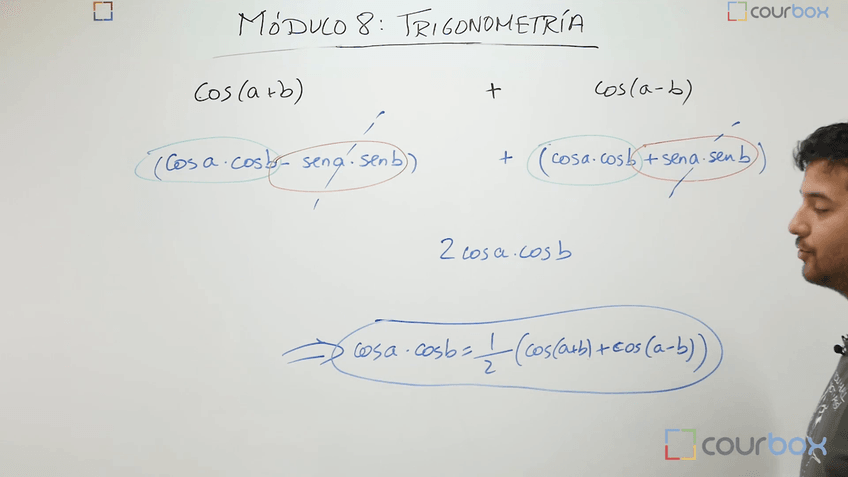 MÓDULO 8: TRIGONOMETRÍA
courbox
cos(a+b) + cos(a-b)
(cosa·cosb - sena·senb) + (cosa·cosb + sena·senb)
2cosa·cosb
⇒ cosa·cosb = 1/2 (cos(a+b) + cos(a-b))
courbox